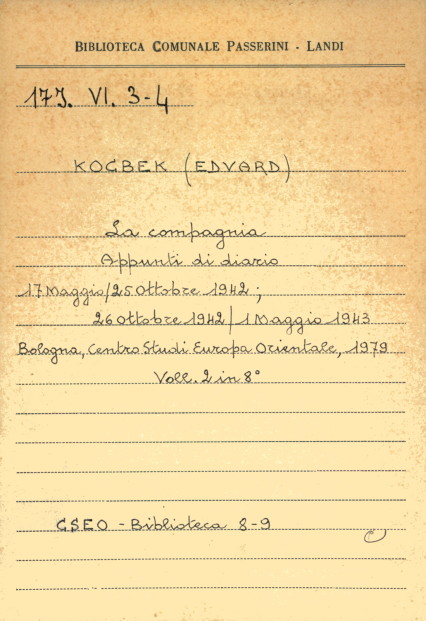 BIBLIOTECA COMUNALE PASSERINI - LANDI
17J. VI. 3-4
KOCBEK (EDVARD)
La compagnia
Appunti di diario
17 Maggio/25 Ottobre 1942;
26 Ottobre 1942/1 Maggio 1943
Bologna, Centro Studi Europa Orientale, 1979
Voll. 2 in 8°
CSEO - Biblioteca 8-9